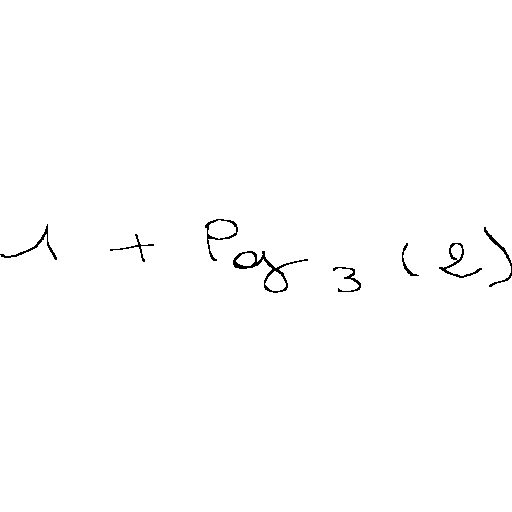 1 + log₃(2)